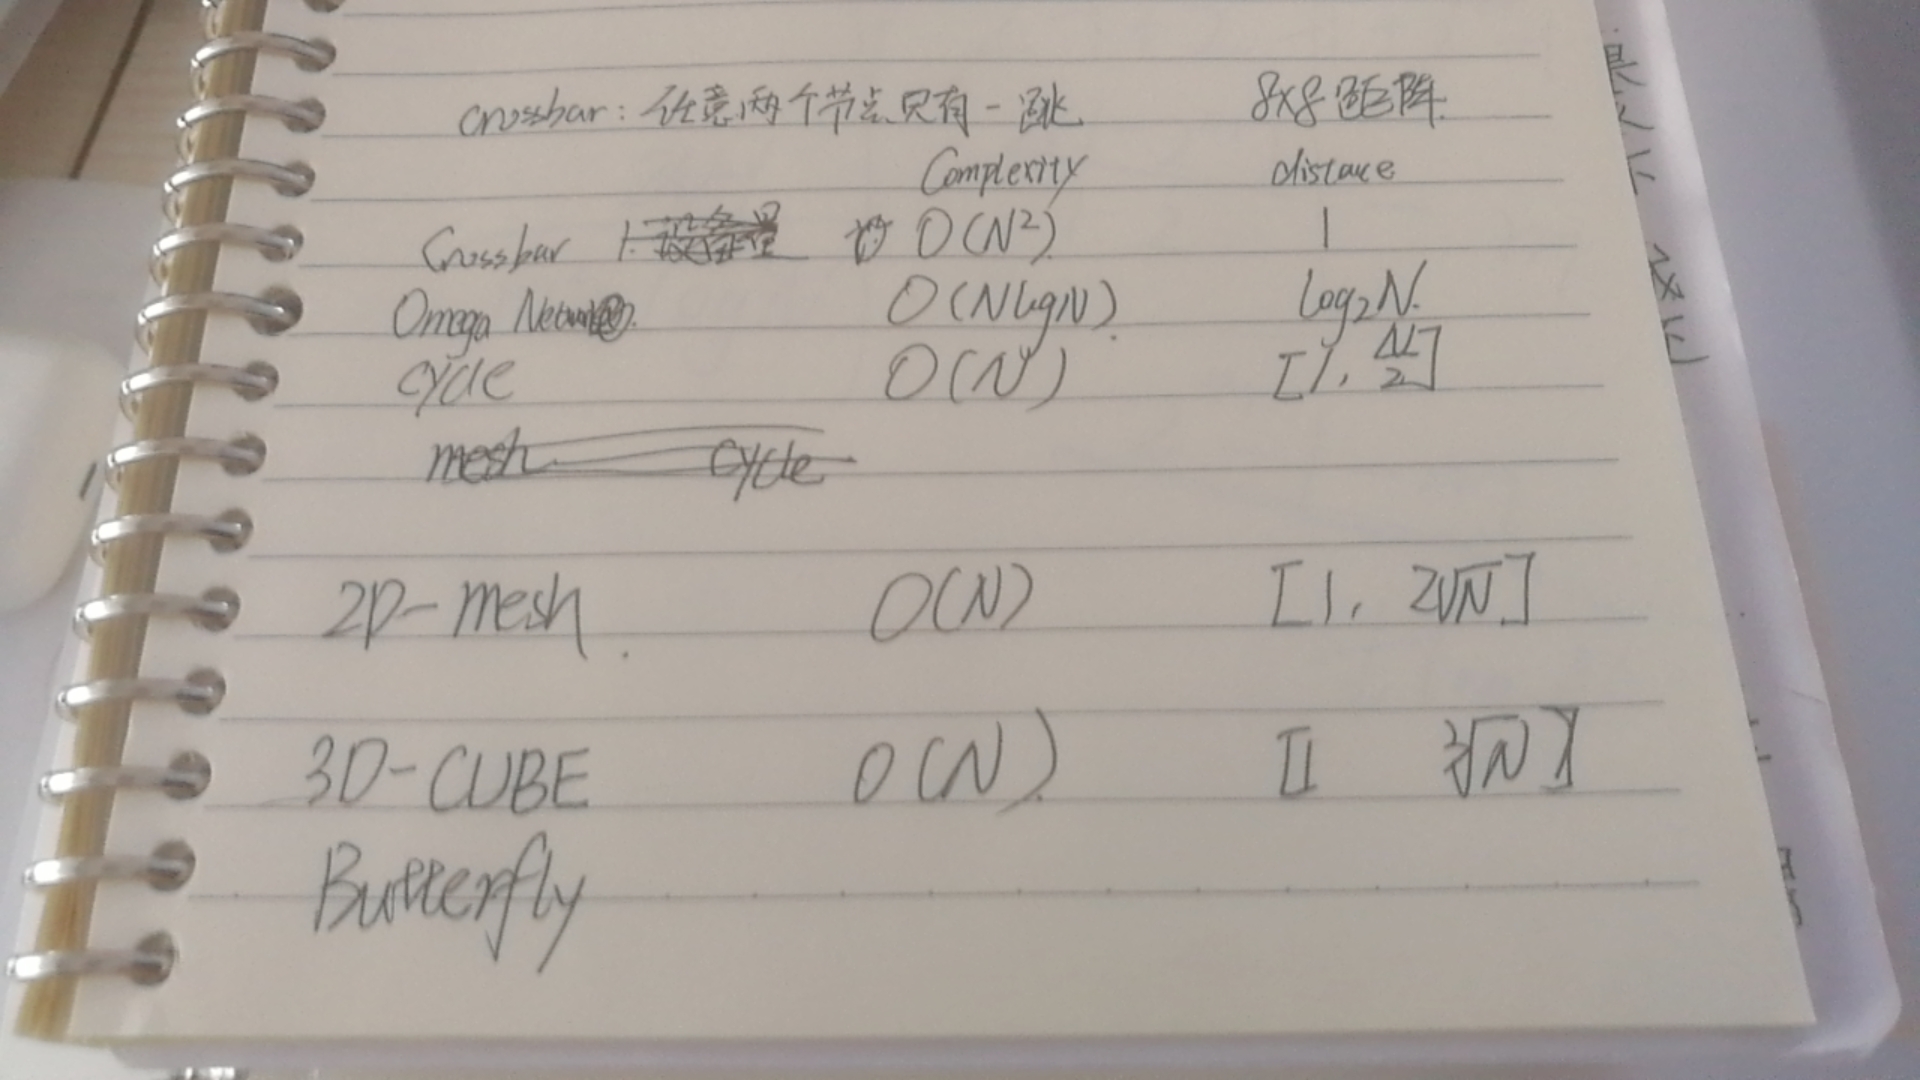 crossbar: 任意两个节点只有一跳 8x8矩阵.
Complexity distance
Crossbar 1. O(N²). 1
Omega Network. O(NlogN). log₂N.
cycle O(N) [1, N/2]
mesh cycle
2D-mesh. O(N) [1, 2√N]
3D-CUBE O(N). [1 ∛N]
Butterfly